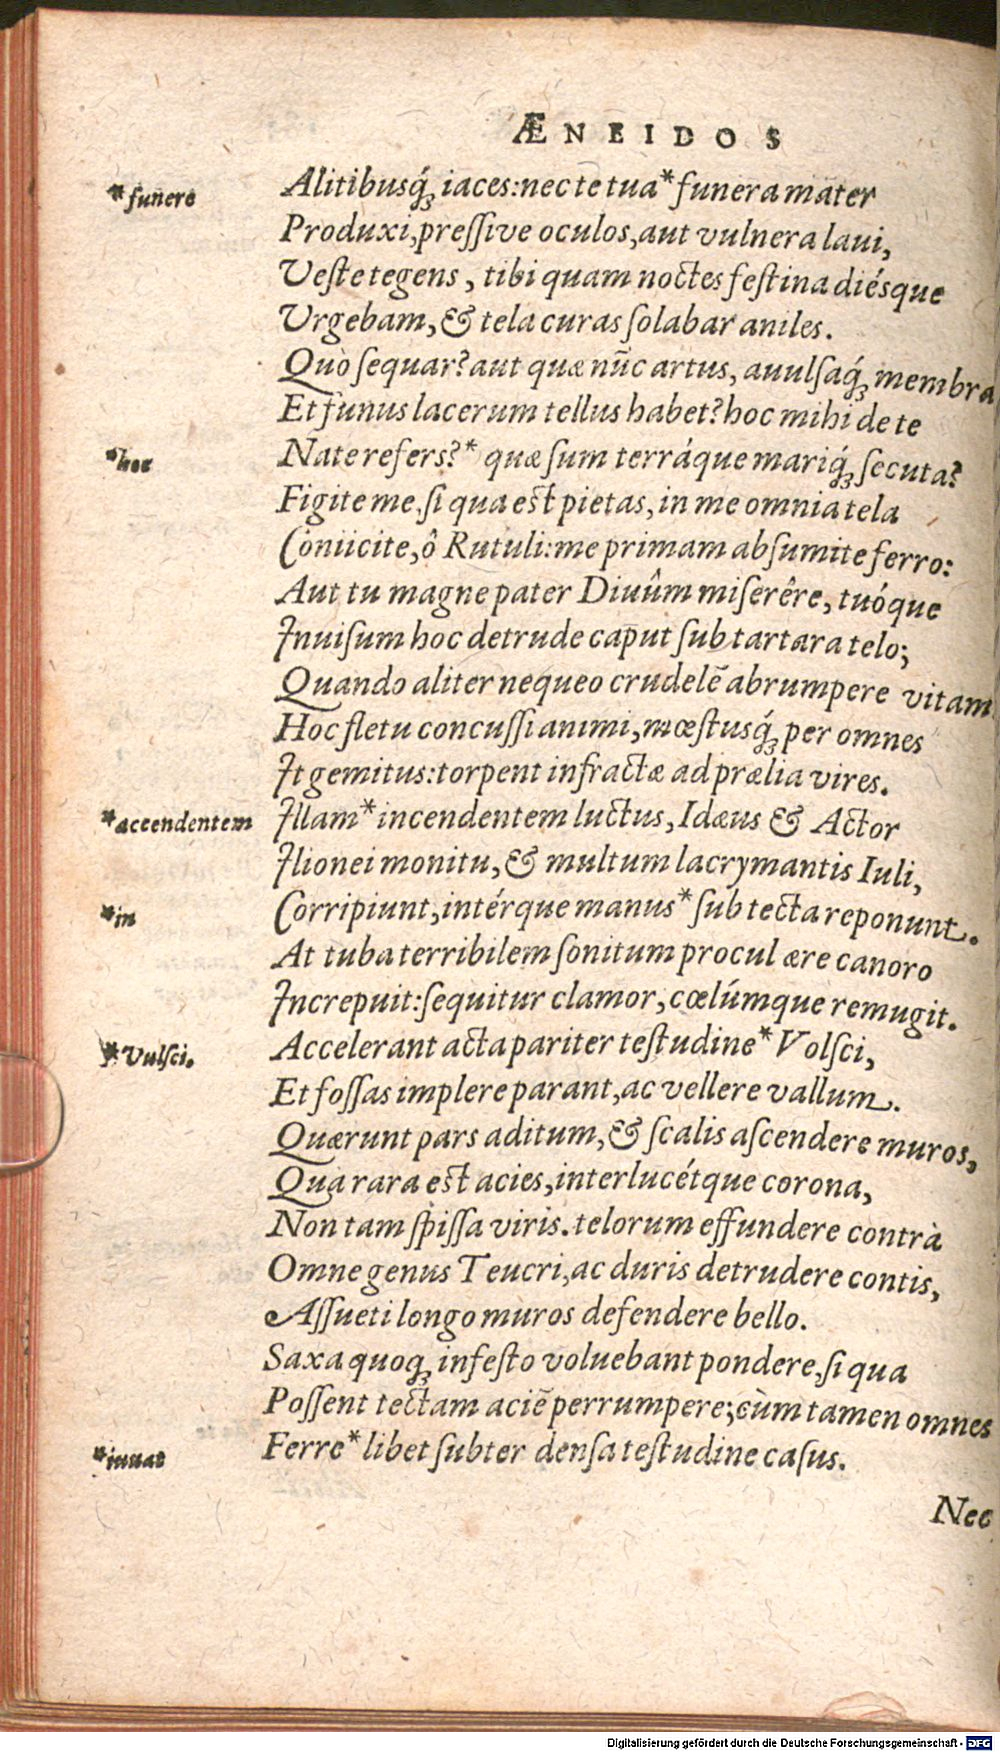 ÆNEIDOS
*funere
Alitibusq́; iaces: nec te tua* funera mater
Produxi, preſſive oculos, aut vulnera laui,
Veſte tegens, tibi quam noctes feſtina diésque
Vrgebam, & tela curas ſolabar aniles.
Quò ſequar? aut quæ nūc artus, auulſaq́; membra
Et funus lacerum tellus habet? hoc mihi de te
*hoc
Nate refers?* quæ ſum terráque mariq́; ſecuta?
Figite me, ſi qua eſt pietas, in me omnia tela
Coniicite, ô Rutuli: me primam abſumite ferro:
Aut tu magne pater Diuûm miſerêre, tuóque
Inuiſum hoc detrude caput ſub tartara telo;
Quando aliter nequeo crudelē abrumpere vitam
Hoc fletu concuſſi animi, mœſtusq́; per omnes
It gemitus: torpent infractæ ad prælia vires.
*accendentem
Illam* incendentem luctus, Idæus & Actor
Ilionei monitu, & multum lacrymantis Iuli,
*in
Corripiunt, intérque manus* ſub tecta reponunt.
At tuba terribilem ſonitum procul ære canoro
Increpuit: ſequitur clamor, cœlúmque remugit.
*Vulſci.
Accelerant acta pariter teſtudine* Volſci,
Et foſſas implere parant, ac vellere vallum.
Quærunt pars aditum, & ſcalis aſcendere muros,
Qua rara eſt acies, interlucétque corona,
Non tam ſpiſſa viris. telorum effundere contrà
Omne genus Teucri, ac duris detrudere contis,
Aſſueti longo muros defendere bello.
Saxa quoq; infeſto voluebant pondere, ſi qua
Poſſent tectam aciē perrumpere; cùm tamen omnes
*iuuat
Ferre* libet ſubter denſa teſtudine caſus.
Nec
Digitalisierung gefördert durch die Deutsche Forschungsgemeinschaft - DFG